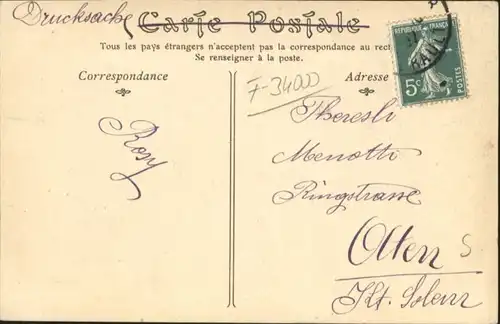 Drucksache
Carte Postale
Tous les pays étrangers n'acceptent pas la correspondance au recto
Se renseigner à la poste.
Correspondance
Adresse
F-34000
REPUBLIQUE FRANÇAISE
5c
POSTES
Rosy
Theresli
Menotti
Ringstrasse
Olten
S
Kt. Solern